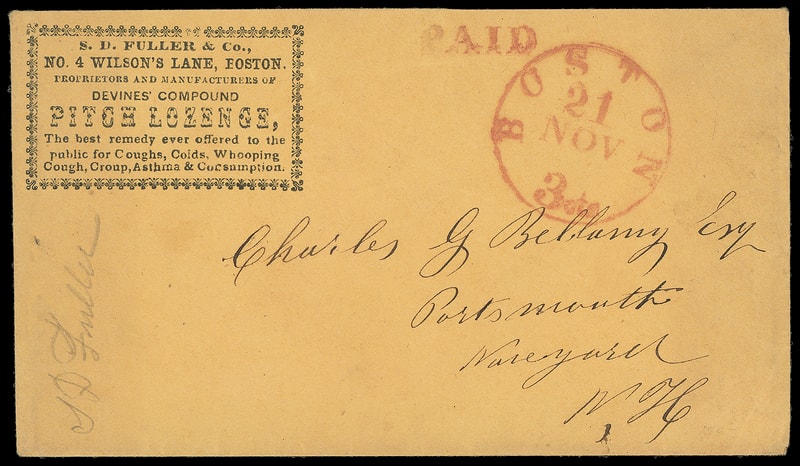 S. D. FULLER & Co.,
NO. 4 WILSON'S LANE, BOSTON.
PROPRIETORS AND MANUFACTURERS OF
DEVINES' COMPOUND
PITCH LOZENGE,
The best remedy ever offered to the
public for Coughs, Colds, Whooping
Cough, Croup, Asthma & Consumption.
PAID
BOSTON
21
NOV
3 cts
Charles G Bellamy Esq
Portsmouth
Naveyard
N H
S D Fuller